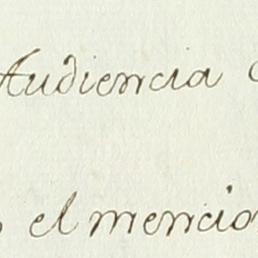 Audiencia
el mencio